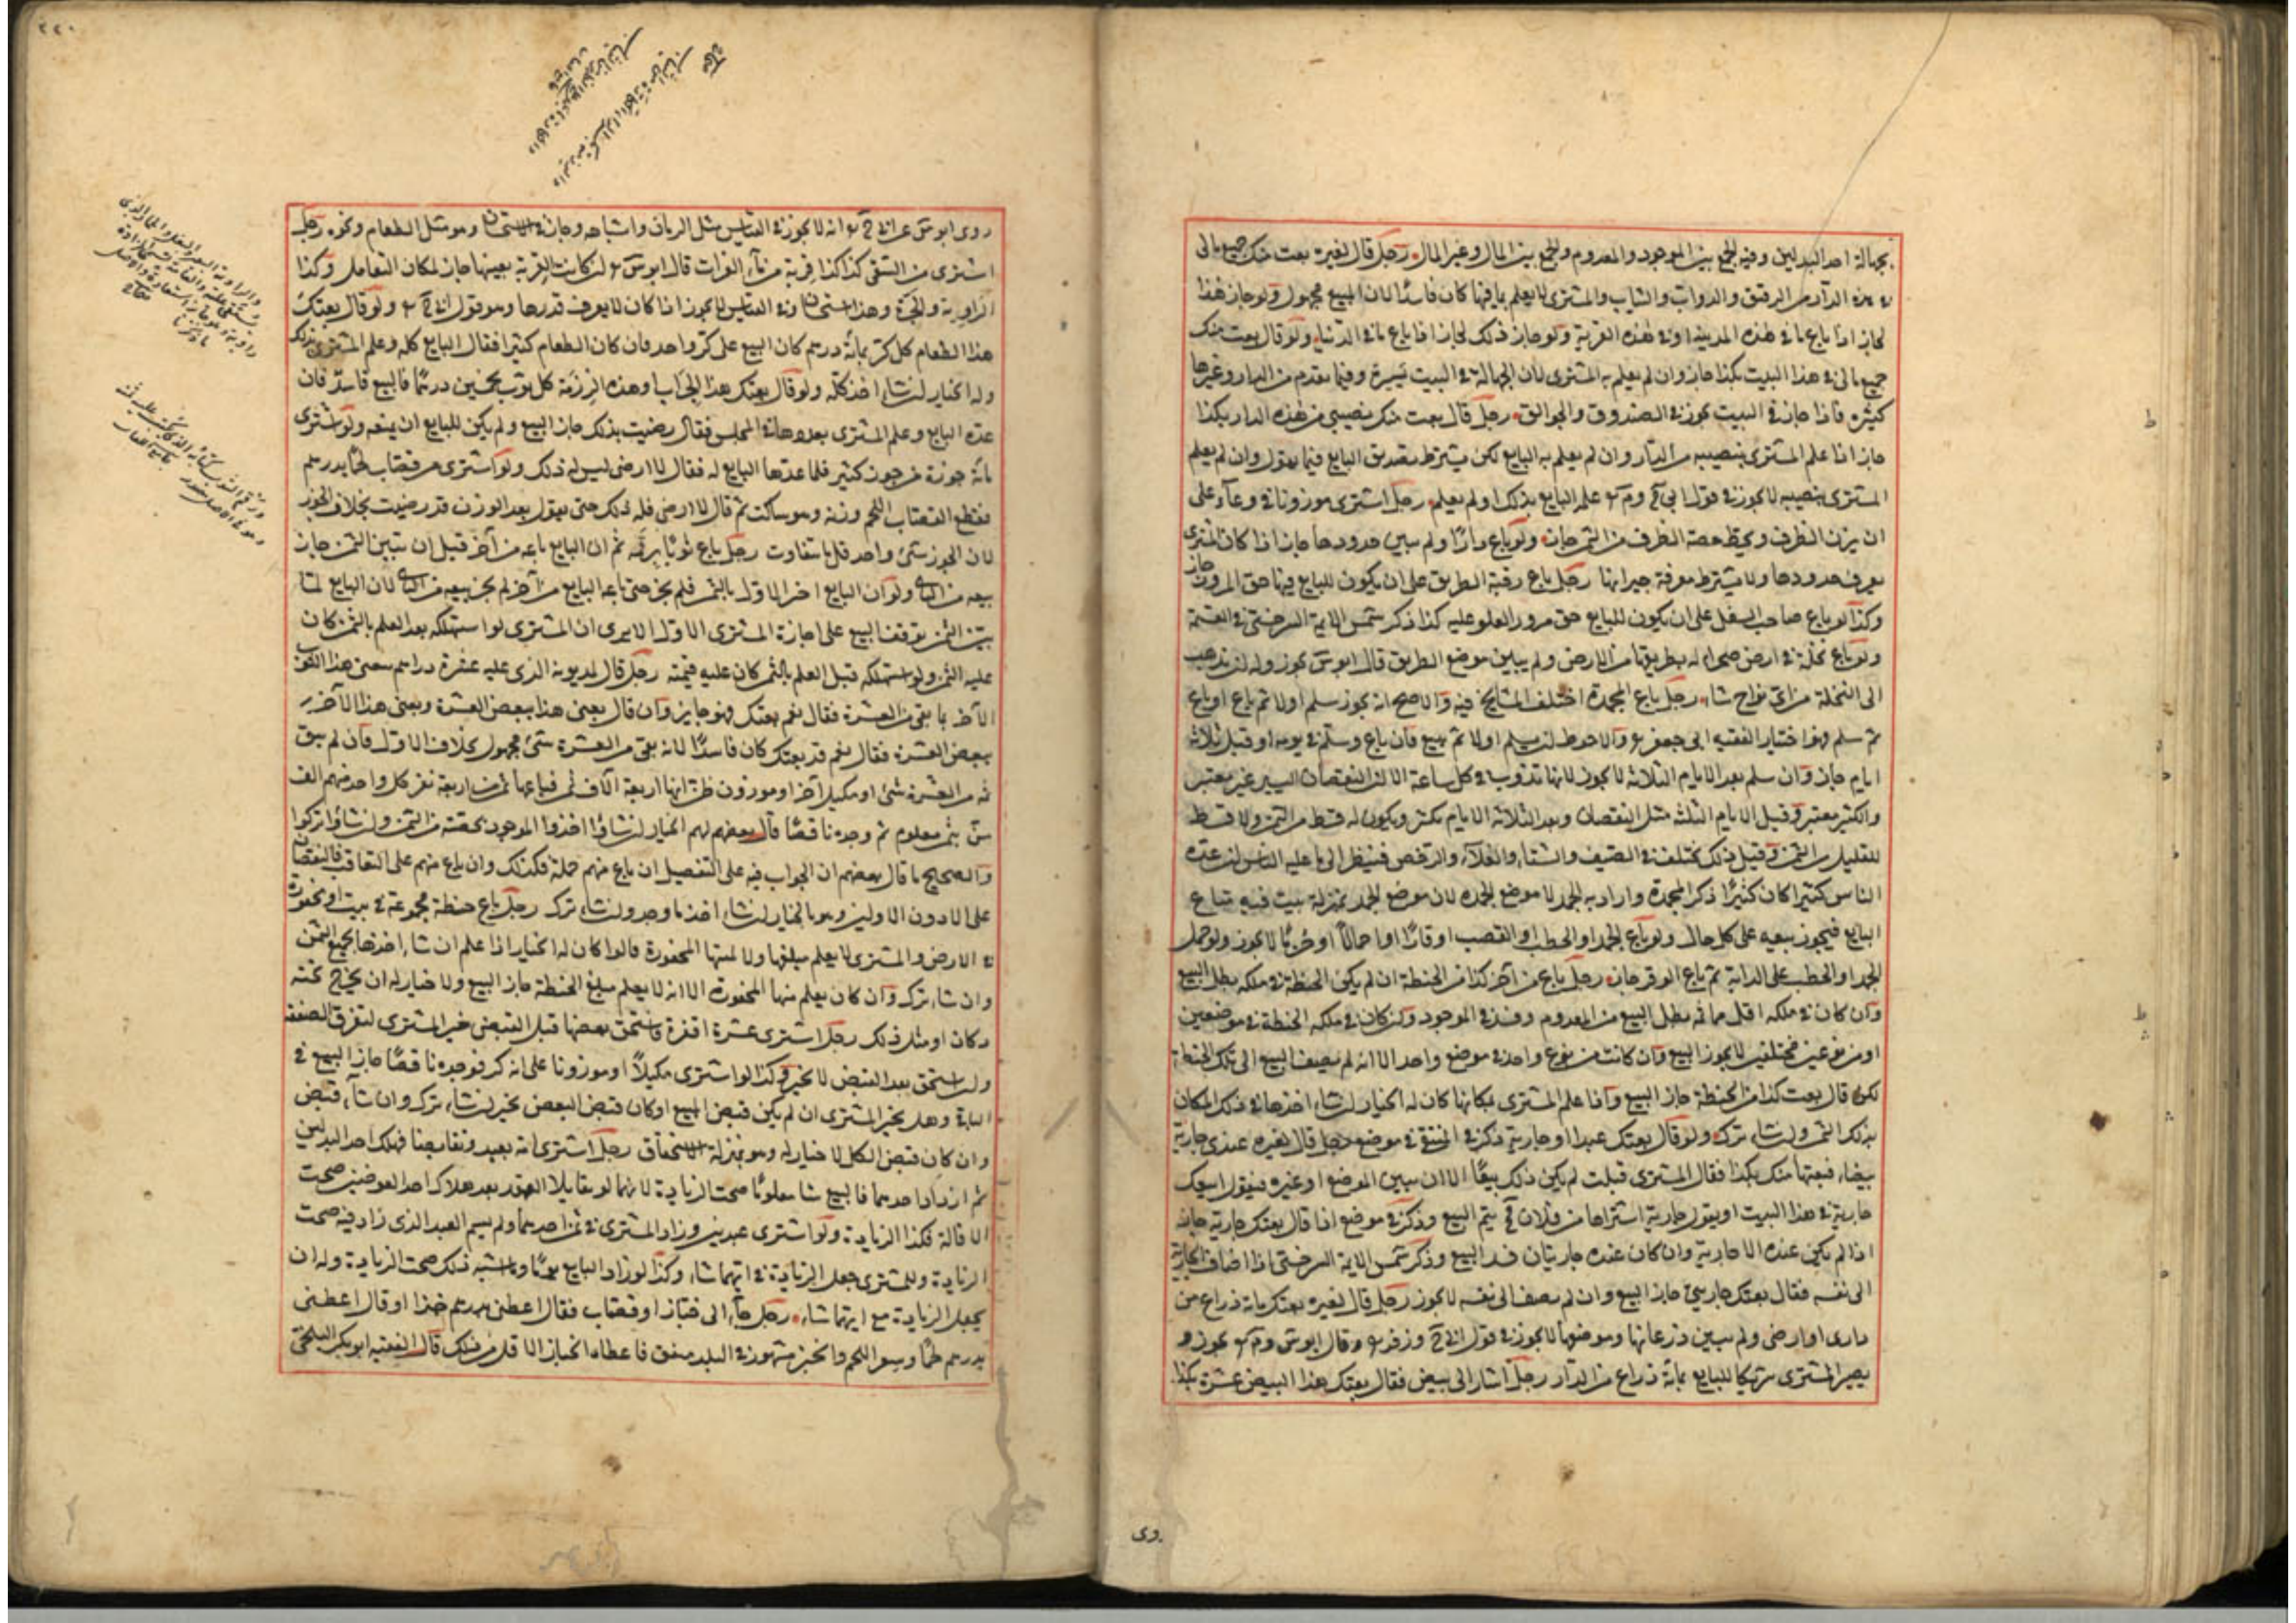 بجهالة احد البدلين وفيه الجمع بين الموجود والمعدوم والجمع بين المال وغير المال رجل قال لغيره بعت منك جميع مالى
فى هذه الدار من الرقيق والدواب والثياب والمشترى لا يعلم ما فيها كان فاسدًا لان المبيع مجهول ولو جاز هذا
لجاز اذا باع ما فى هذه المدينة او فى هذه القرية ولو جاز ذلك لجاز اذا باع ما فى الدنيا ولو قال بعت منك
جميع مالى فى هذا البيت بكذا جاز وان لم يعلم به المشترى لان الجهالة فى البيت يسيرة وفيما تقدم من الدار وغيرها
كثيرة فاذا جاز فى البيت يجوز فى الصندوق والجوالق رجل قال بعت منك نصيبى من هذه الدار بكذا
جاز اذا علم المشترى بنصيبه من الدار وان لم يعلم به البايع لكن يشترط تصديق البايع فيما يقول وان لم يعلم
المشترى بنصيبه لا يجوز فى قول ابى ح وم علم البايع بذلك او لم يعلم رجل اشترى موزونا فى وعاء على
ان يزن الظرف ويحط حصة الظرف من الثمن جاز ولو باع دارًا ولم يبين حدودها جاز اذا كان المشترى
يعرف حدودها ولا يشترط معرفة جيرانها رجل باع رقبة الطريق على ان يكون للبايع فيها حق المرور جاز
وكذا لو باع صاحب السفل على ان يكون للبايع حق مرور العلو عليه كذا ذكر شمس الايمة السرخسى فى القسمة
ولو باع نخلة فى ارض صحراء له بطريقها من الارض ولم يبين موضع الطريق قال ابو س يجوز وله ان يذهب
الى النخلة من اى نواح شاء رجل باع المجمدة اختلف المشايخ فيه والاصح انه يجوز سلم اولا ثم باع او باع
ثم سلم وهو اختيار الفقيه ابى جعفر والاحوط ان يسلم اولا ثم يبيع فان باع وسلم فى يومه او قبل ثلاثة
ايام جاز وان سلم بعد الايام الثلاثة لا يجوز لانها تذوب فى كل ساعة الا ان النقصان اليسير غير معتبر
والكثير معتبر وقبل الايام الثلثة مثل النقصان وبعد الثلاثة الايام يكثر ويكون له قسط من الثمن ولا قسط
للقليل من الثمن وقيل ذلك يختلف فى الصيف والشتاء والغلاء والرخص فينظر الى ما عليه الناس ان عده
الناس كثيرا كان كثيرًا ذكر المجمدة واراد به الجمد لا موضع الجمد لان موضع الجمد بمنزلة بيت فيه متاع
البايع فيجوز بيعه على كل حال ولو باع الجمد او الحطب او القصب اوقارًا او احمالًا او حزمًا لا يجوز ولو حمل
الجمد او الحطب على الدابة ثم باع الوقر جاز رجل باع من آخر كذا من الحنطة ان لم يكن الحنطة فى ملكه بطل البيع
وان كان فى ملكه اقل مما سمى بطل البيع فى المعدوم وفسد فى الموجود وان كان فى ملكه الحنطة فى موضعين
او من نوعين مختلفين لا يجوز البيع وان كانت من نوع واحد فى موضع واحد الا انه لم يضف البيع الى تلك الحنطة
لكن قال بعت كذا من الحنطة جاز البيع واذا علم المشترى بمكانها كان له الخيار ان شاء اخذها فى ذلك المكان
بذلك الثمن وان شاء ترك ولو قال بعتك عبدا او جارية ذكر فى المنتقى فى موضع رجل قال لغيره عندى جارية
بيضاء فبعتها منك بكذا فقال المشترى قبلت لم يكن ذلك بيعًا الا ان يبين الموضع او غيره فيقول ابيعك
جارية فى هذا البيت او يقول جارية اشتراها من فلان ح يتم البيع وذكر فى موضع اذا قال بعتك جارية جاز
اذا لم يكن عنده الا جارية وان كان عنده جاريتان فسد البيع وذكر شمس الايمة السرخسى اذا اضاف الجارية
الى نفسه فقال بعتك جاريتى جاز البيع وان لم يضف الى نفسه لا يجوز رجل قال لغيره بعتك مائة ذراع من
دارى او ارضى ولم يبين ذرعانها وموضعها لا يجوز فى قول ابى ح وزفر وقال ابو س وم يجوز و
يصير المشترى شريكا للبايع بمائة ذراع من الدار رجل اشار الى بيض فقال بعتك هذا البيض عشرة بكذا
روى
٢٢٠
روى ابو س عن ابى ح انه لا يجوز فى القياس مثل الرمان واشباهه وجاز فى الاستحسان وهو مثل الطعام ونحوه رجل
اشترى من السقى كذا كذا قربة من ماء الفرات قال ابو س ان كانت القربة بعينها جاز لمكان التعامل وكذا
الراوية والجرة وهذا استحسان وفى القياس لا يجوز اذا كان لا يعرف قدرها وهو قول ابى ح ولو قال بعتك
هذا الطعام كل كر بمائة درهم كان البيع على كر واحد فان كان الطعام كثيرا فقال البايع كله وعلم المشترى بذلك
وله الخيار ان شاء اخذ كله ولو قال بعتك هذا الجراب او هذه الرزمة كل ثوب بخمسين درهمًا فالبيع فاسد فان
عده البايع وعلم المشترى بعددها فى المجلس فقال رضيت بذلك جاز البيع ولم يكن للبايع ان يمنعه ولو اشترى
مائة جوزة من جوز كثير فلما عدها البايع له فقال لا ارضى ليس له ذلك ولو اشترى من قصاب لحمًا بدرهم
فقطع القصاب اللحم وزنه وهو ساكت ثم قال لا ارضى فله ذلك حتى يقول بعد الوزن قد رضيت بخلاف الجوز
لان الجوز شئ واحد قل ما يتفاوت رجل باع ثوبًا برقمه ثم ان البايع باعه من آخر قبل ان يتبين الثمن جاز
بيعه من الثانى ولو ان البايع اخبر الاول بالثمن فلم يجز حتى باعه البايع من آخر لم يجز بيعه من الثانى لان البايع لما
بين الثمن توقف البيع على اجازة المشترى الاول الا يرى ان المشترى لو استهلكه بعد العلم بالثمن كان
عليه الثمن ولو استهلكه قبل العلم بالثمن كان عليه قيمته رجل قال لمديونه الذى عليه عشرة دراهم بعنى هذا الثوب
الآخر بما بقى من العشرة فقال نعم بعتك فهو جايز وان قال بعنى هذا ببعض العشرة وبعنى هذا الآخر
ببعض العشرة فقال نعم قد بعتك كان فاسدًا لانه بقى من العشرة شئ مجهول بخلاف الاول فان لم يبق
ثمه من العشرة شئ او مكيل آخر او موزون ظن انها اربعة آلاف من فباعها ثمن اربعة نفر كل واحد منهم الف
من بثمن معلوم ثم وجده ناقصًا قال بعضهم لهم الخيار ان شاؤا اخذوا الموجود بحصته من الثمن وان شاؤا تركوا
والصحيح ما قال بعضهم ان الجواب فيه على التفصيل ان باع منهم جملة فكذلك وان باع منهم على التعاقب فالنقصان
على الآخر دون الاولين وهو بالخيار ان شاء اخذ ما وجد وان شاء ترك رجل باع حنطة مجموعة فى بيت او محفورة
فى الارض والمشترى لا يعلم مبلغها ولا منتهى المحفورة قالوا كان له الخيار اذا علم ان شاء اخذها بجميع الثمن
وان شاء ترك وان كان يعلم منتهى المحفورة الا انه لا يعلم مبلغ الحنطة جاز البيع ولا خيار له ان يخرج تحته
دكان او مثل ذلك رجل اشترى عشرة اقفزة واستحق بعضها قبل القبض خير المشترى لتفرق الصفقة
وان استحق بعد القبض لا يخير وكذا لو اشترى مكيلًا او موزونا على انه كر فوجده ناقصًا جاز البيع فى
الباقى وهل يخير المشترى ان لم يكن قبض المبيع او كان قبض البعض يخير ان شاء ترك وان شاء قبض
وان كان قبض الكل لا خيار له وهو بمنزلة الاستحقاق رجل اشترى امة بعبد وتقابضا فهلك احد البدلين
ثم ازداد احدهما فالبيع شيا معلومًا صحت الزيادة لانهما لو تقايلا العقد بعد هلاك احد العوضين صحت
الاقالة فكذا الزيادة ولو اشترى عبدين وزاد المشترى فى ثمن احدهما ولم يسم العبد الذى زاد فيه صحت
الزيادة وللمشترى جعل الزيادة فى ايهما شاء وكذا لو زاد البايع ثوبًا وما اشبه ذلك صحت الزيادة وله ان
يجعل الزيادة مع ايهما شاء رجل جاء الى خباز او قصاب فقال اعطنى بدرهم خبزا او قال اعطنى
بدرهم لحمًا وسعر اللحم والخبز مشهور فى البلد متفق فاعطاه الخباز الاقل من ذلك قال الفقيه ابو بكر البلخى